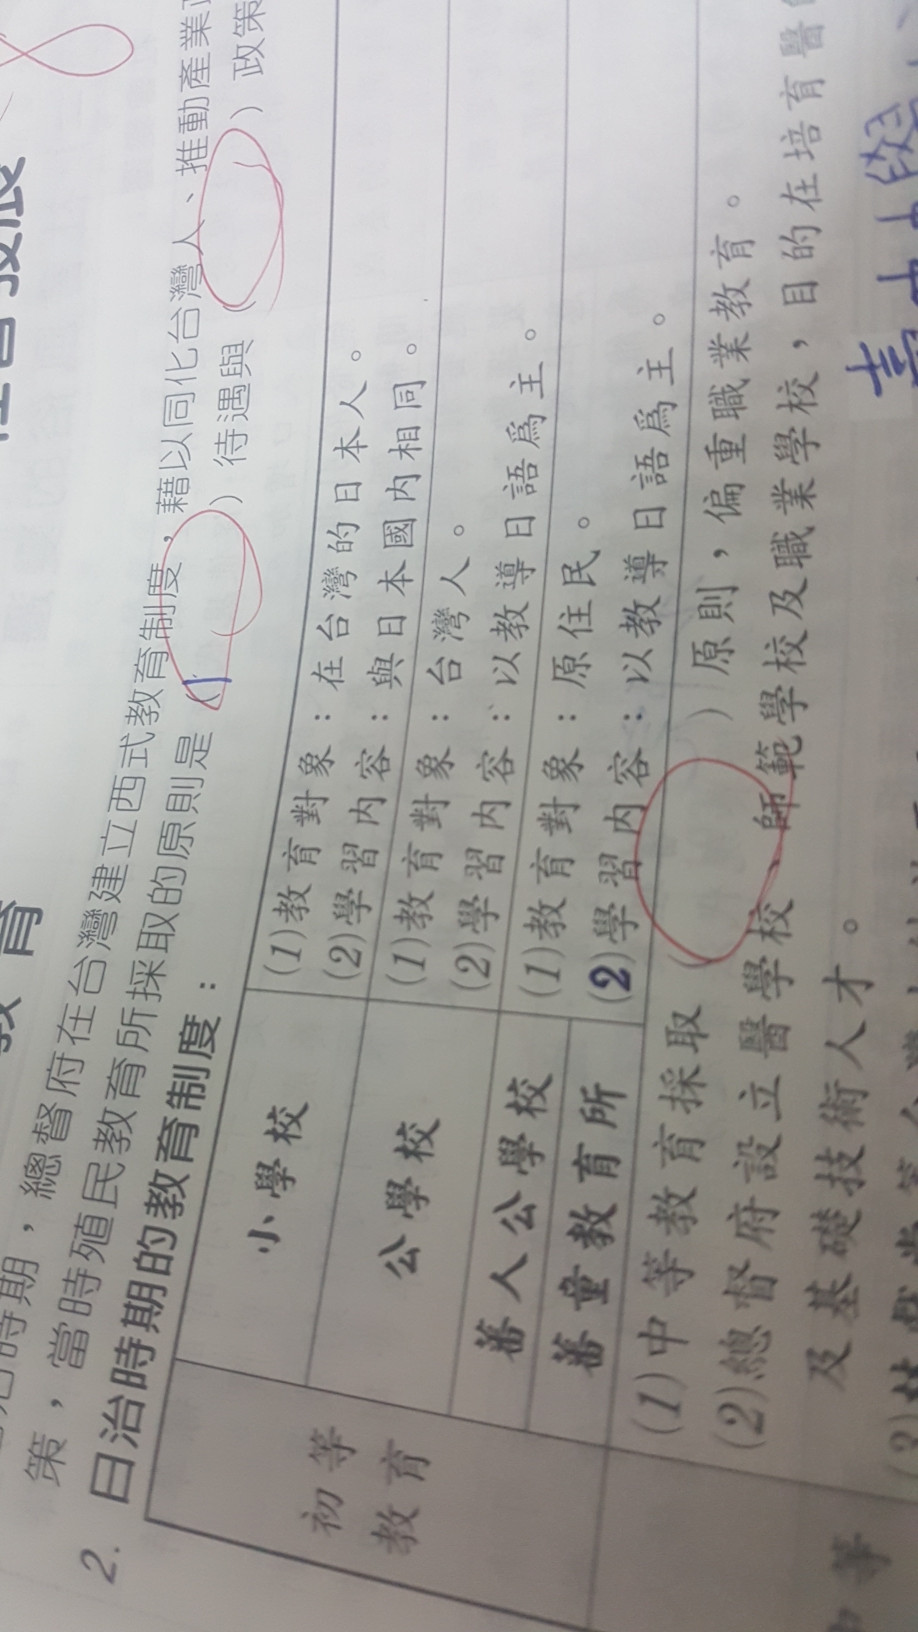 教育
時期，總督府在台灣建立西式教育制度，藉以同化台灣人、推動產業
策，當時殖民教育所採取的原則是（ ）待遇與（ ）政策
2. 日治時期的教育制度：
初等教育
小學校
(1)教育對象：在台灣的日本人。
(2)學習內容：與日本國內相同。
公學校
(1)教育對象：台灣人。
(2)學習內容：以教導日語為主。
蕃人公學校
蕃童教育所
(1)教育對象：原住民。
(2)學習內容：以教導日語為主。
(1)中等教育採取（ ）原則，偏重職業教育。
(2)總督府設立醫學校、師範學校及職業學校，目的在培育醫
及基礎技術人才。